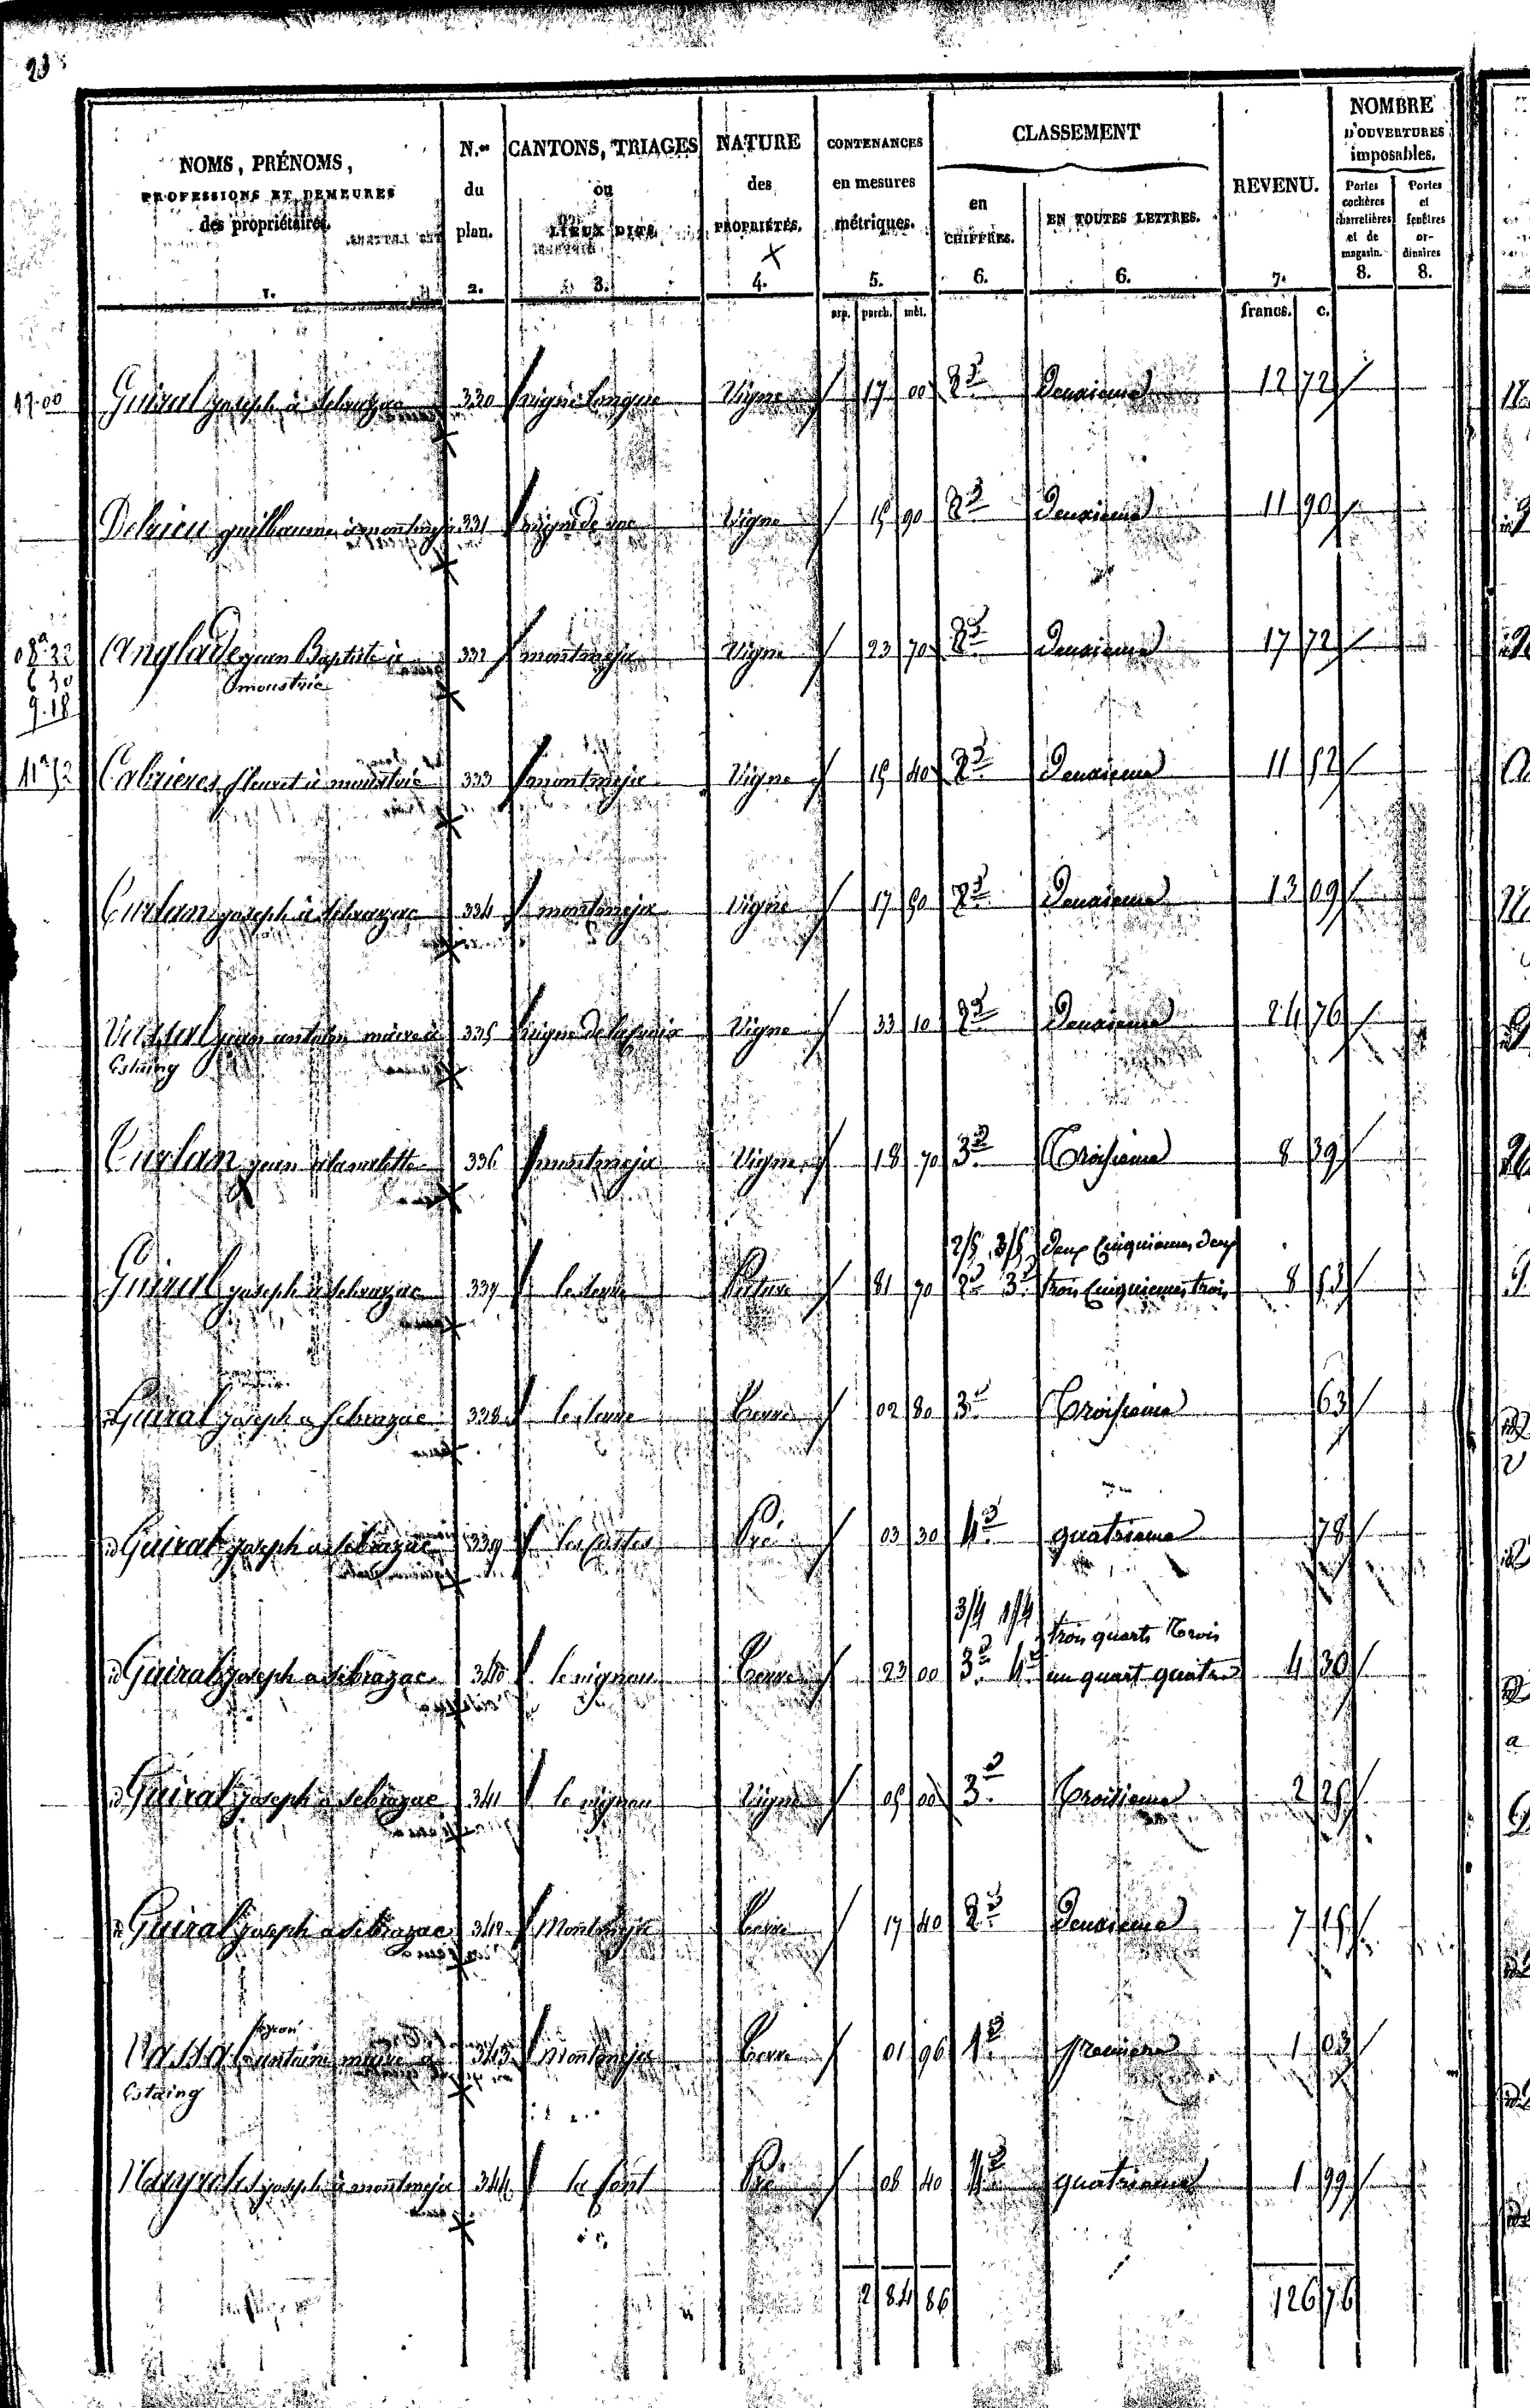 23
NOMS, PRÉNOMS, PROFESSIONS ET DEMEURES des propriétaires. 1.
N.os du plan. 2.
CANTONS, TRIAGES ou LIEUX DITS. 3.
NATURE des PROPRIÉTÉS. 4.
CONTENANCES en mesures métriques. 5.
CLASSEMENT
en CHIFFRES. 6.
EN TOUTES LETTRES. 6.
REVENU. 7.
NOMBRE D'OUVERTURES imposables.
Portes cochères charretières et de magasin. 8.
Portes et fenêtres ordinaires 8.
arp. perch. mèt. francs. c.
17-00 Guiral joseph à Sebrazac 330 vigne longue Vigne 17 00 2e Deuxieme 12 72
Delrieu guilhaume à montmeja 331 vigne de Vigne 15 90 2e Deuxieme 11 90
08a 22
6 30
9.18
Anglade jean Baptiste à 332 montmeja Vigne 23 70 2e Deuxieme 17 72
11a 52 Cabrieres fleuret à 333 montmeja Vigne 15 40 2e Deuxieme 11 52
Curlan joseph à Sebrazac 334 montmeja Vigne 17 50 2e Deuxieme 13 09
jean antoine maire à 335 vigne de Vigne 33 10 2e Deuxieme 24 76
Estaing
Curlan jean 336 montmeja Vigne 18 70 3e Troisieme 8 39
2/5 3/5 deux Cinquiemes deux
Guiral joseph à Sebrazac 337 Pature 81 70 2e 3e trois Cinquiemes trois 8 53
id Guiral joseph a Sebrazac 338 Terre 02 80 3e Troisieme 63
id Guiral joseph a Sebrazac 339 les Pré 03 30 4e quatrieme 78
3/4 1/4 trois quarts Trois
id Guiral joseph a Sebrazac 340 le vignau Terre 23 00 3e 4e un quart quatre 4 30
id Guiral joseph a Sebrazac 341 le vignau Vigne 05 00 3e Troisieme 2 25
id Guiral joseph a Sebrazac 342 Montmeja Terre 17 40 2e Deuxieme 7 15
antoine maire a 343 Montmeja Terre 01 96 1e premiere 1 03
Estaing
joseph à montmeja 344 la font Pré 08 40 4e quatrieme 1 99
2 84 86 126 76